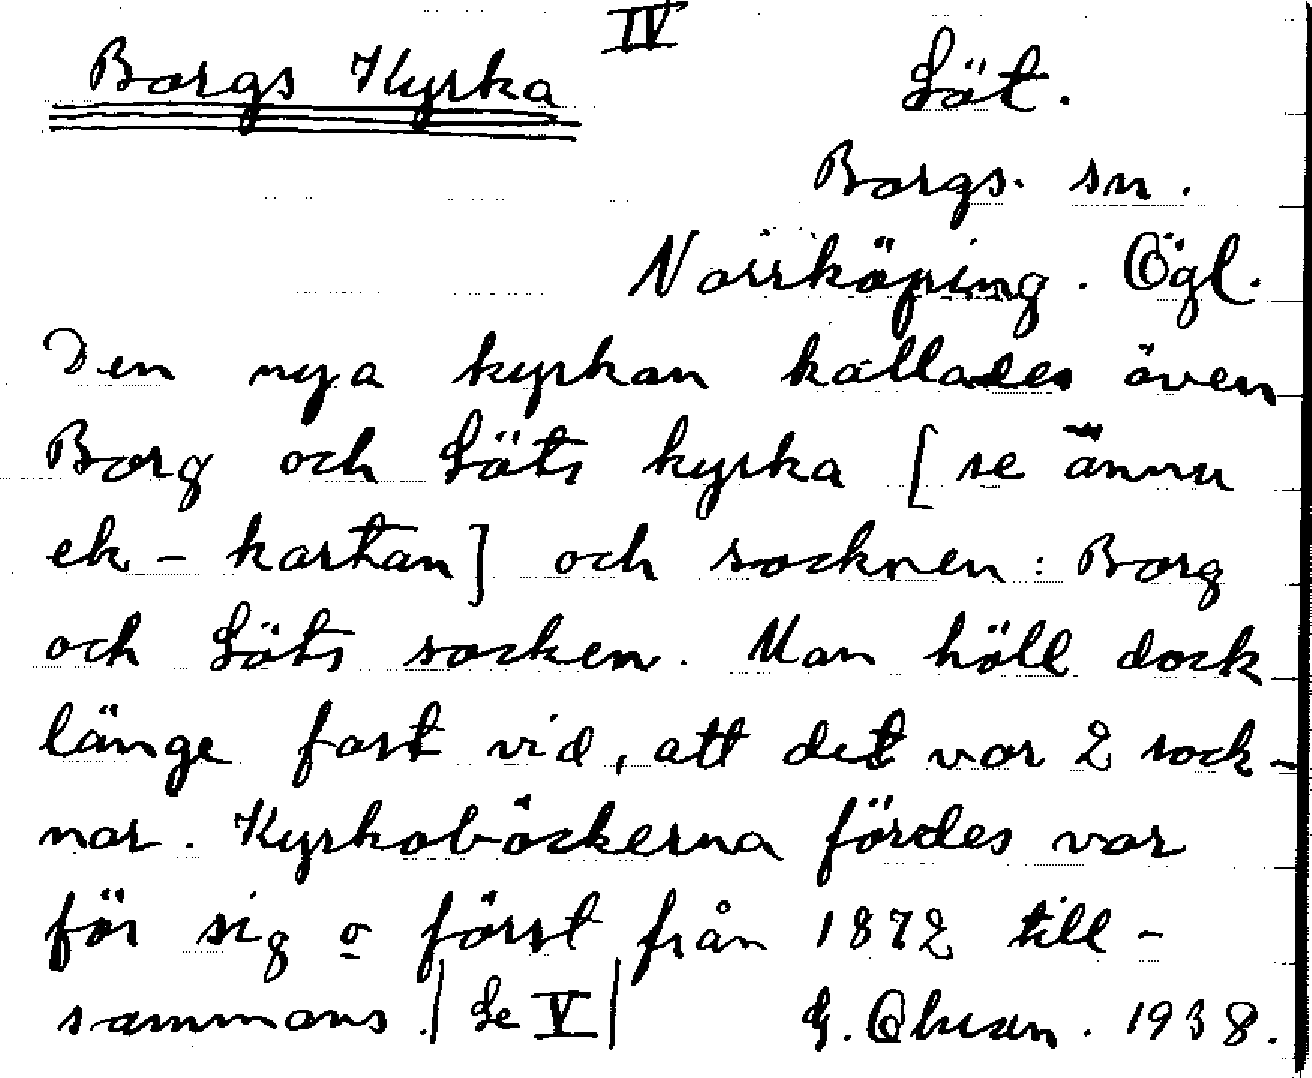 IV
Borgs Kyrka
Löt.
Borgs. sn.
Norrköping. Ögl.
Den nya kyrkan kallades även
Borg och Löts kyrka [se ännu
ek-kartan] och socknen: Borg
och Löts socken. Man höll dock
länge fast vid, att det var 2 sock-
nar. Kyrkoböckerna fördes var
för sig o först från 1872 till-
sammans. | Se V |
G. 1938.